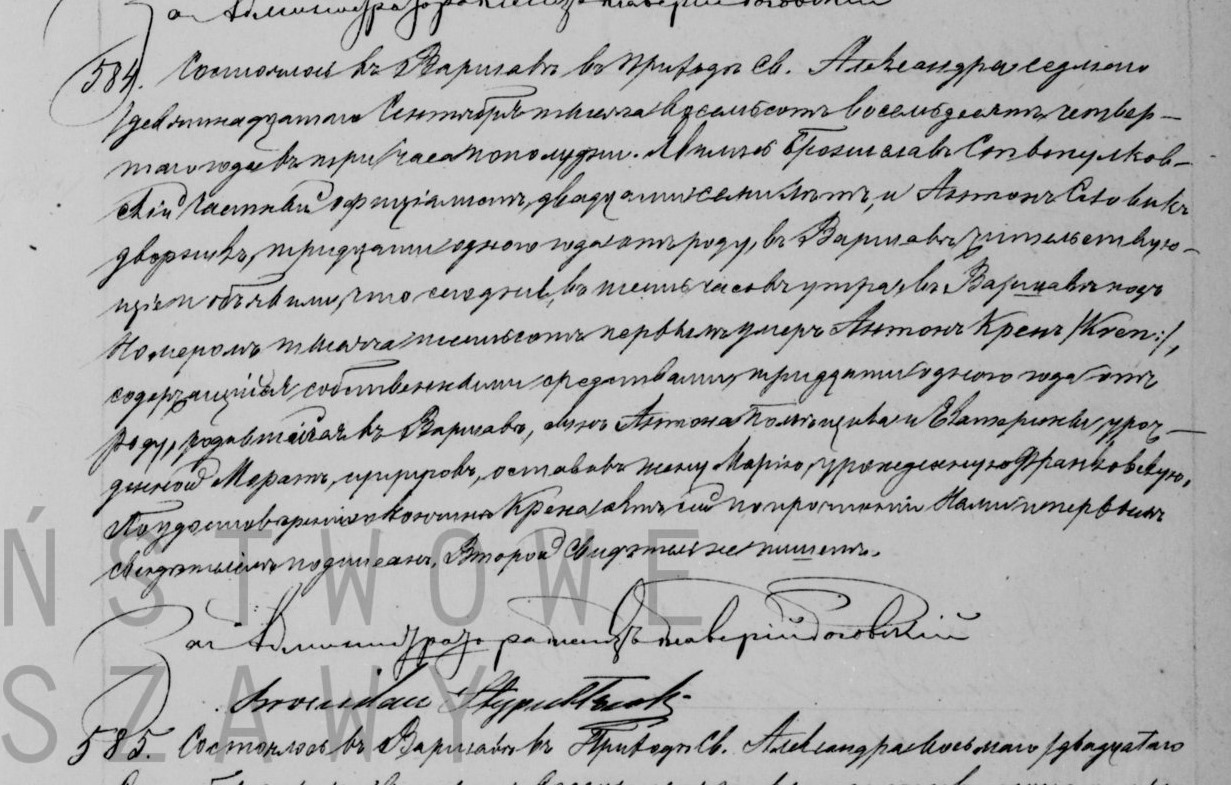 За Администратора Ксендзъ Ксаверій Роговскій
584. Состоялось въ Варшавѣ въ приходѣ Св. Александра седьмаго
/девятнадцатаго Сентября тысяча восемьсотъ восемьдесятъ четвер-
таго года въ три часа пополудни. Явились Брониславъ
скій частный оффиціялистъ, двадцати семи лѣтъ, и Антонъ Словикъ
дворникъ, тридцати одного года отъ роду, въ Варшавѣ жительствую-
щіе и объявили, что сегодня, въ шесть часовъ утра, въ Варшавѣ подъ
Номеромъ тысяча шестьсотъ первымъ умеръ Антонъ Кренъ /Kren:/,
содержащійся собственными средствами, тридцати одного года отъ
роду, родившійся въ Варшавѣ, сынъ Антона и Екатерины, урож-
денной Моратъ, супруговъ, оставивъ жену Марію, урожденную Франковскую.
По удостовѣреніи о кончинѣ Крена актъ сей по прочтеніи Нами и первымъ
свидѣтелемъ подписанъ, Второй свидѣтель не пишетъ.
За Администратора Ксендзъ Ксаверій Роговскій
585. Состоялось въ Варшавѣ въ Приходѣ Св. Александра восьмаго /двадцатаго
ŃSTWOWE
SZAWY